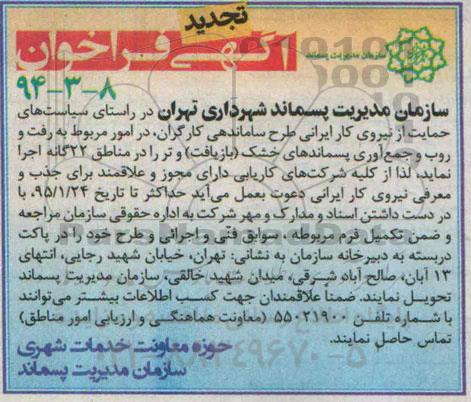 تجدید
آگهی فراخوان
سازمان مدیریت پسماند
۹۴-۳-۸
سازمان مدیریت پسماند شهرداری تهران در راستای سیاست‌های
حمایت از نیروی کار ایرانی طرح ساماندهی کارگران، در امور مربوط به رفت و
روب و جمع‌آوری پسماندهای خشک (بازیافت) و تر را در مناطق ۲۲گانه اجرا
نماید، لذا از کلیه شرکت‌های کاریابی دارای مجوز و علاقمند برای جذب و
معرفی نیروی کار ایرانی دعوت بعمل می‌آید حداکثر تا تاریخ ۹۵/۱/۲۴، با
در دست داشتن اسناد و مدارک و مهر شرکت به اداره حقوقی سازمان مراجعه
و ضمن تکمیل فرم مربوطه، سوابق فنی و اجرائی و طرح خود را در پاکت
دربسته به دبیرخانه سازمان به نشانی: تهران، خیابان شهید رجایی، انتهای
۱۳ آبان، صالح آباد شرقی، میدان شهید خالقی، سازمان مدیریت پسماند
تحویل نمایند. ضمناً علاقمندان جهت کسب اطلاعات بیشتر می‌توانند
با شماره تلفن ۵۵۰۲۱۹۰۰ (معاونت هماهنگی و ارزیابی امور مناطق)
تماس حاصل نمایند.
حوزه معاونت خدمات شهری
سازمان مدیریت پسماند